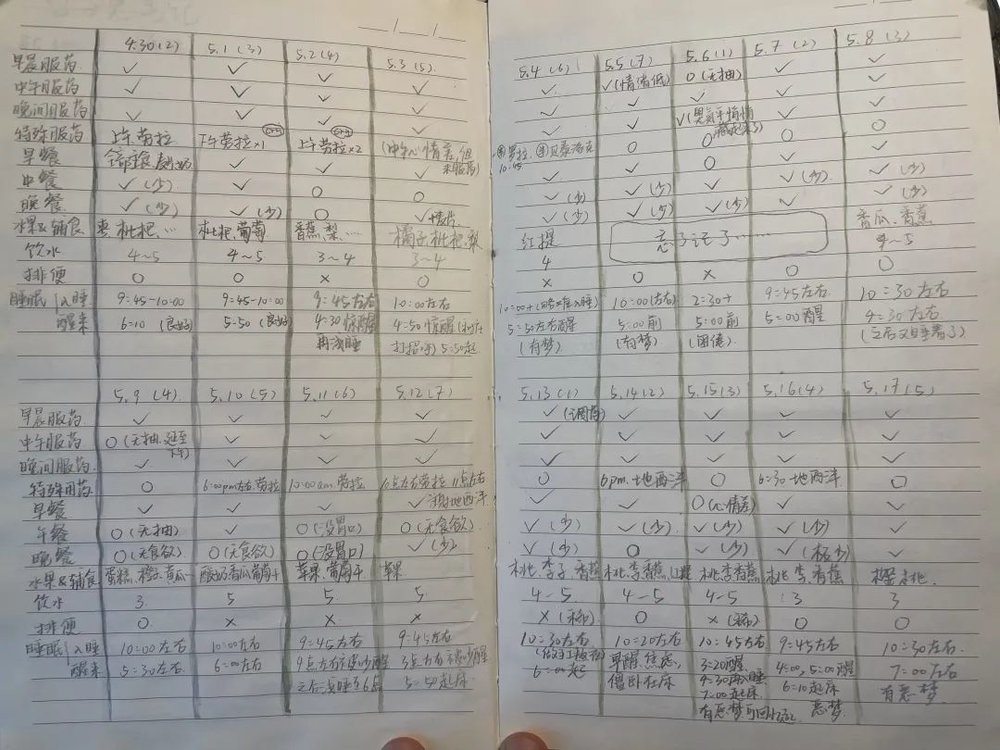 4.30(2) 5.1(3) 5.2(4) 5.3(5)
早晨服药 ✓ ✓ ✓ ✓
中午服药 ✓ ✓ ✓ ✓
晚间服药 ✓ ✓ ✓ ✓
特殊服药 上午劳拉 下午劳拉×1 上午劳拉×2 (中午心情差,但未服药)
早餐 ✓ ✓ ✓
中餐 ✓(少) ✓ ○ ✓
晚餐 ✓(少) ✓(少) ○ ✓
水果&辅食 枇杷… 枇杷、葡萄 香蕉、梨、… 橘子 枇杷、梨
饮水 4~5 4~5 3~4 3~4
排便 ○ ○ × ○
睡眠 入睡 9:45-10:00 9:45-10:00 9:45左右 10:00左右
醒来 6:10(良好) 5:50(良好) 4:30惊醒 4:50惊醒
再浅睡 打招呼) 5:50起
5.9(4) 5.10(5) 5.11(6) 5.12(7)
早晨服药 ✓ ✓ ✓ ✓
中午服药 ○(无抽.延至下午) ✓ ✓ ✓
晚间服药 ✓ ✓ ✓ ✓
特殊用药 ○ 6:00pm左右.劳拉 10:00am劳拉 6点左右劳拉 11点左右
早餐 ✓ ✓ ✓ ✓ 地西泮
午餐 ○(无抽) ✓ ○(没胃口) ○(无食欲)
晚餐 ○(无食欲) ○(无食欲) ○(没胃口) ✓(少)
水果&辅食 蛋糕、橙子、黄瓜 酸奶香瓜葡萄干 苹果.葡萄干 苹果
饮水 3 5 5 5
排便 ○ × × ×
睡眠 入睡 10:00左右 10:00左右 9:45左右 9:45左右
醒来 5:30左右 6:00左右 9点左右 3点左右
5:50起床
5.4(6) 5.5(7) 5.6(1) 5.7(2) 5.8(3)
✓ ✓(情绪低) ○(无抽) ✓ ✓
✓ ✓ ✓ ✓ ✓
✓ ✓ ✓(男氧手悄悄藏起来了) ✓ ✓
10:45 ○ ○ ○ ○
✓ ✓ ○ ✓ ✓
✓(少) ✓(少) ✓ ✓(少) ✓(少)
✓(少) ✓(少) ✓(少) ✓ ✓(少)
红提 忘了记了…… 香瓜、香蕉
4 4~5
○ ○ × ○ ○
10:00+ 10:00(左右) 2:30+ 9:45左右 10:30左右
5:50左右醒 5:00前 5:00前 5:00醒 4:30左右
(有梦) (有梦) (困倦) (之后又睡着了)
5.13(1) 5.14(2) 5.15(3) 5.16(4) 5.17(5)
✓(调药) ✓ ✓ ✓ ✓
✓ ✓ ✓ ✓ ✓
✓ ✓ ✓ ✓ ✓
○ 6pm.地西泮 ○ 6:30地西泮 ○
✓ ✓ ○(心情差) ✓ ✓
✓(少) ✓(少) ✓(少) ✓(少) ✓
✓(少) ○ ✓(少) ✓(极少) ✓
桃、李子、香蕉 桃、李、香蕉 桃、李、香蕉 桃、李、香蕉 桃.
4-5 4-5 4-5 3 3
×(稀) ○ ×(稀) ○ ○
10:30左右 10:20左右 10:45左右 9:45左右 10:30左右
6:00起 早醒、焦虑、 3:20醒 4:00,5:00醒 7:00左右
僵卧在床 4:30再入睡 6:10起床 有恶梦
7:00起床 恶梦
有恶梦可回忆